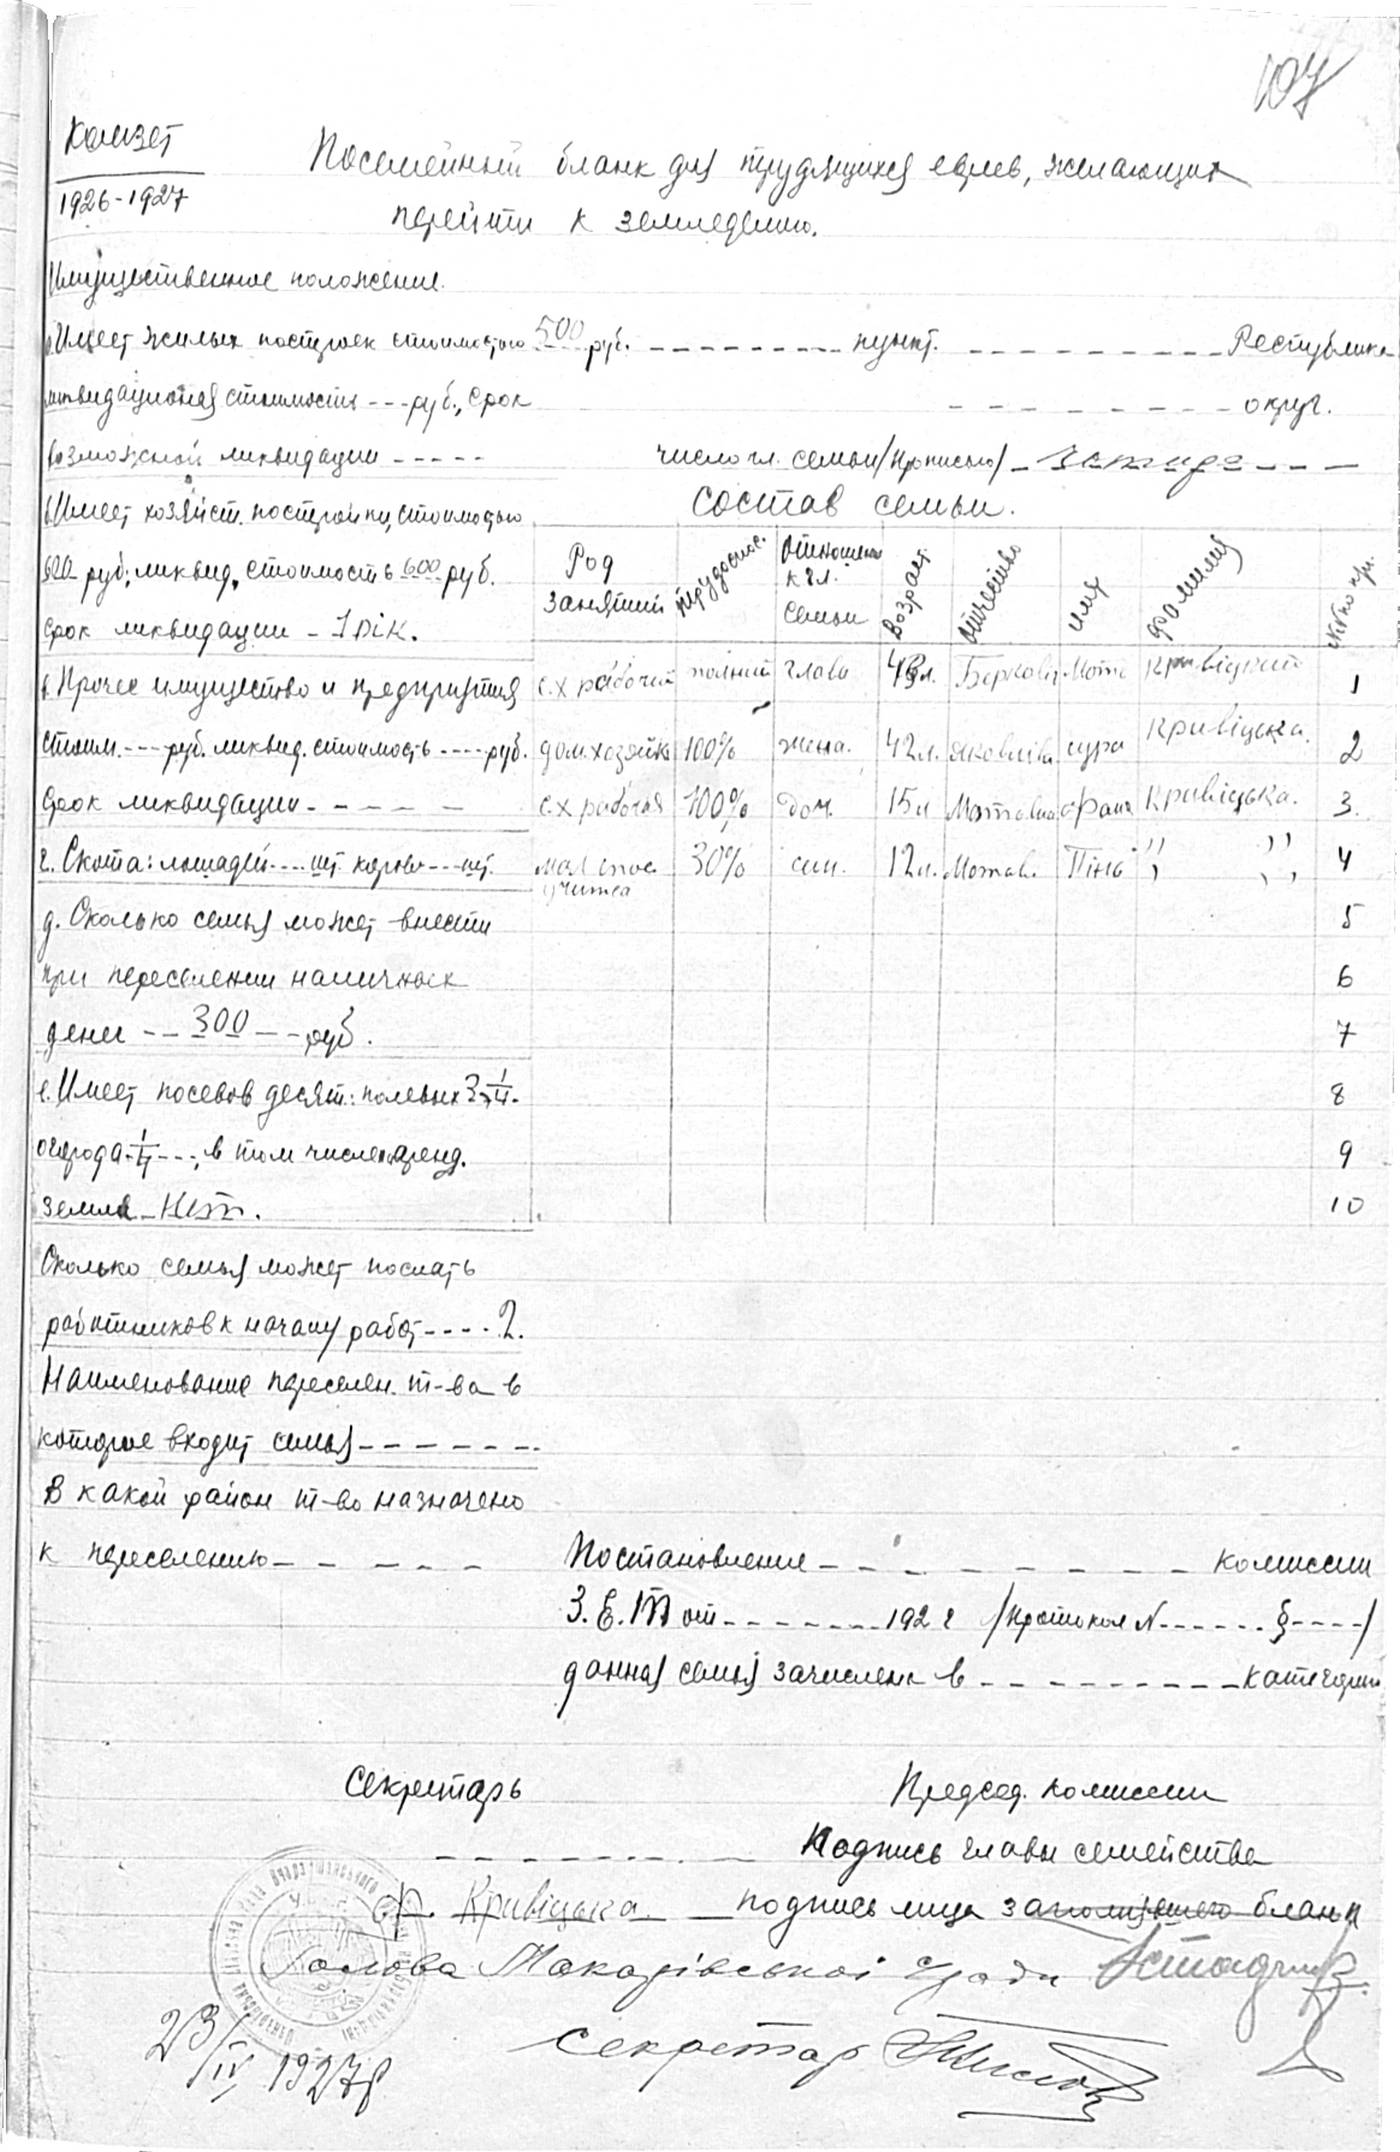 107
Комзет
1926-1927
Посемейный бланк для трудящихся евреев, желающих
перейти к земледелию.
Имущественное положение.
а. Имеет жилых построек стоимостью 500 руб.
ликвидационная стоимость --- руб., срок
возможной ликвидации -----
б. Имеет хозяйст. постройки, стоимостью
руб; ликвид. стоимость 600 руб.
срок ликвидации - 1 рік.
в. Прочее имущество и предприятия
стоим. --- руб. ликвид. стоимость ---- руб.
срок ликвидации - - - - -
г. Скота: лошадей ---- шт. коров --- шт.
д. Сколько семья может внести
при переселении наличных
денег -- 300 -- руб.
е. Имеет посевов десят: полевых 3 1/4.
огорода 1/4 ---, в том числе аренд.
земля - Нет.
Сколько семья может послать
работников к началу работ ---- 2.
Наименование переселен. т-ва в
которое входит семья - - - - - - -
В какой район т-во назначено
к переселению - - - - -
--------- пункт. --------- Республика
- - - - - - - - округ.
число чл. семьи /прописью/ - - - -
Состав семьи.
Род занятий | трудоспос. | Отношение к гл. семьи | возраст | отчество | имя | фамилия | №№ по пр.
с.х рабочий | полний | глава | Беркович | Мот | Кривіцкий | 1
дом. хозяйка | 100% | жена. | 42 л. | Яковлівна | сура | Кривіцька. | 2
с.х рабочая | 100% | доч. | 15 л | Мотовна | Фаня | Кривіцька. | 3.
мал учится | 30% | син. | 12 л. | Мотов. | Пінь | " " | 4
5
6
7
8
9
10
Постановление - - - - - - - - комиссии
З.Е.Т от ------- 192 г /протокол N ------ § ----/
данная семья зачислена в - - - - - - - - - категорию
Секретарь
Председ. комиссии
Подпись главы семейства
Ф. Кривіцька. подпись лица заполнявшего бланк
Голова Макарівської с/ради
секретар
23/IV 1927 р